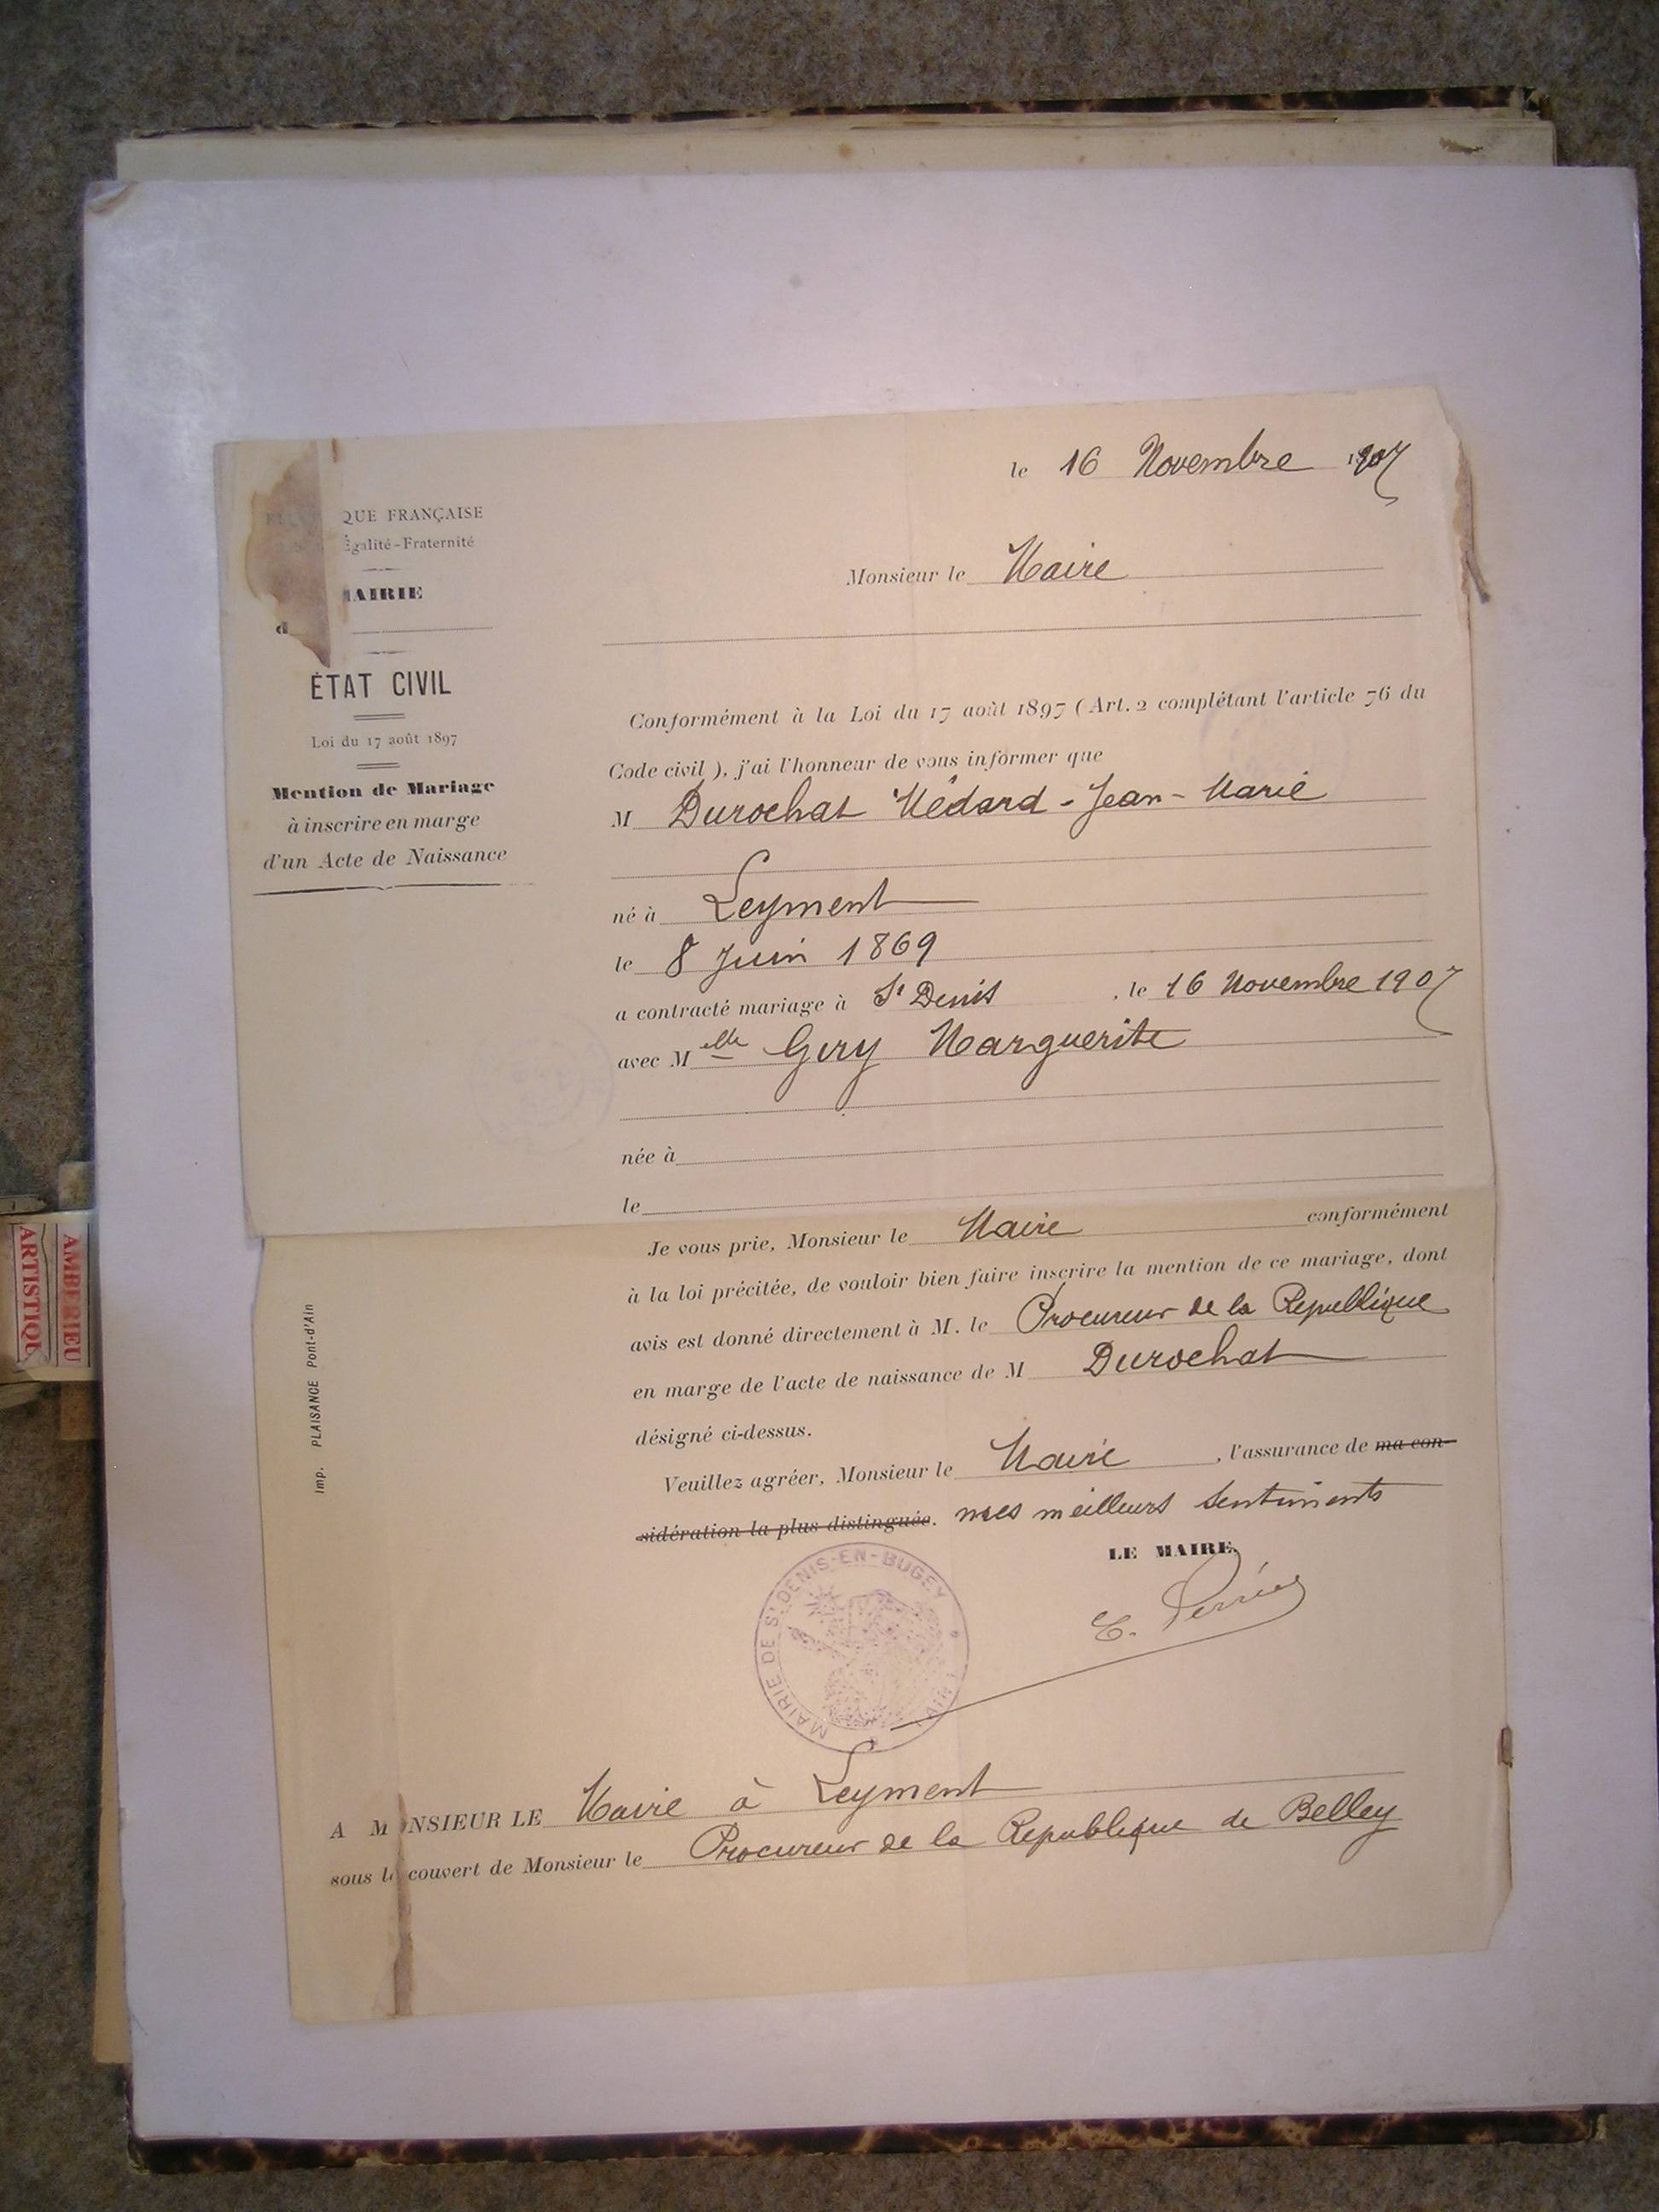 le 16 Novembre 1907
QUE FRANÇAISE
Égalité-Fraternité
MAIRIE
d
ÉTAT CIVIL
Loi du 17 août 1897
Mention de Mariage
à inscrire en marge
d'un Acte de Naissance
Monsieur le Maire
Conformément à la Loi du 17 août 1897 (Art. 2 complétant l'article 76 du
Code civil), j'ai l'honneur de vous informer que
M Durochat Médard-Jean-Marie
né à Leyment
le 8 Juin 1869
a contracté mariage à St Denis, le 16 Novembre 1907
avec M elle Gery Marguerite
née à
le
Je vous prie, Monsieur le Maire conformément
à la loi précitée, de vouloir bien faire inscrire la mention de ce mariage, dont
avis est donné directement à M. le Procureur de la Republique
en marge de l'acte de naissance de M Durochat
désigné ci-dessus.
Veuillez agréer, Monsieur le Maire, l'assurance de ma con-
sidération la plus distinguée. mes meilleurs sentiments
LE MAIRE,
E.
MAIRIE DE ST DENIS-EN-BUGEY (AIN)
A MONSIEUR LE Maire à Leyment
sous le couvert de Monsieur le Procureur de la Republique de Belley
Imp. PLAISANCE Pont-d'Ain
AMBERIEU
ARTISTIQUE